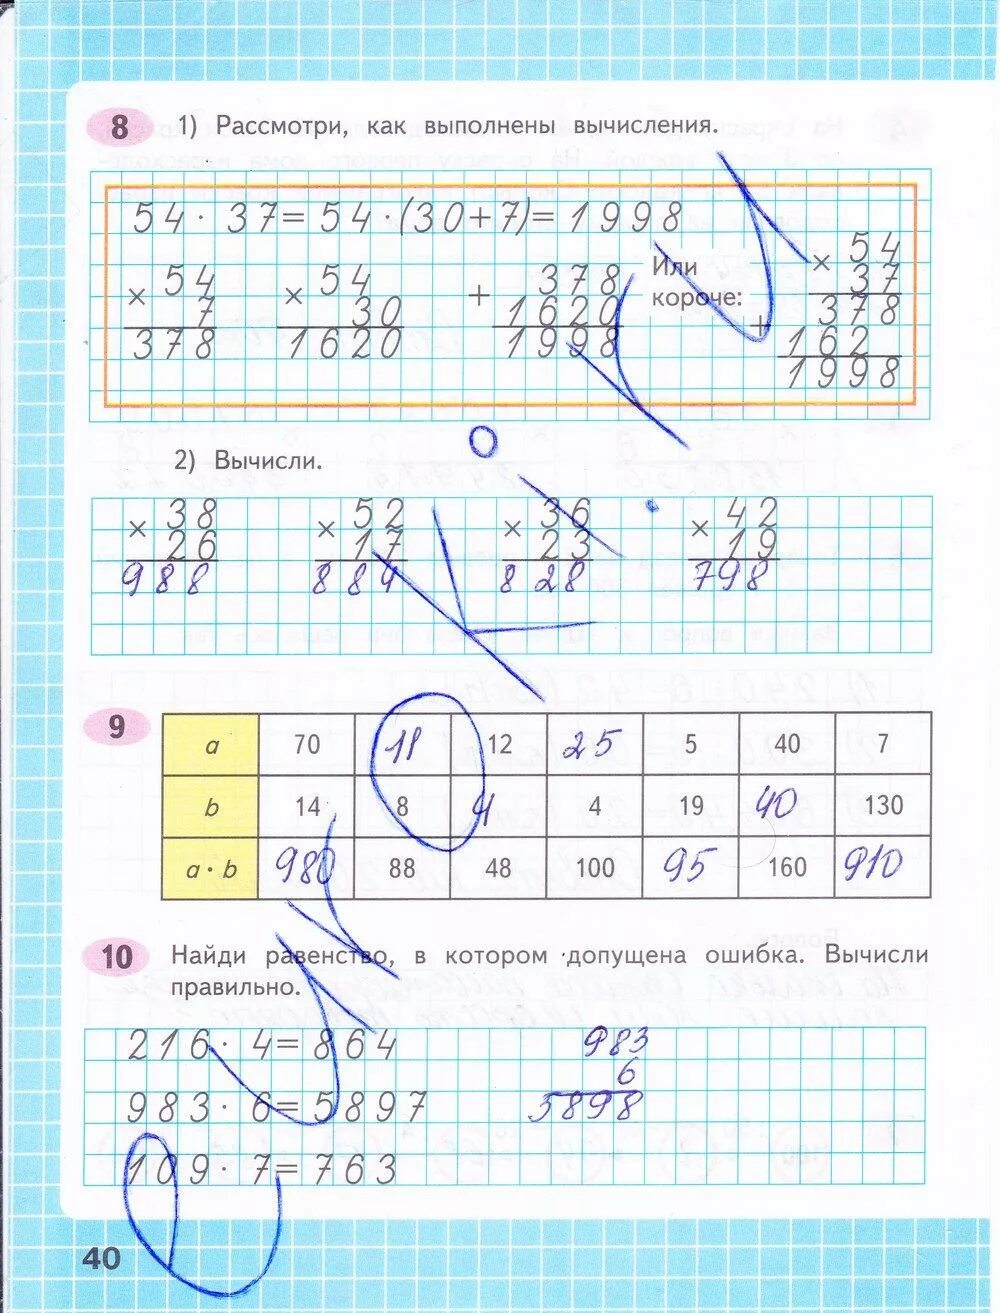 8 1) Рассмотри, как выполнены вычисления.
54 · 37 = 54 · (30 + 7) = 1998
× 54
7
378
× 54
30
1620
+ 378
1620
1998
Или
короче:
× 54
37
+ 378
162
1998
2) Вычисли.
× 38
26
988
× 52
17
884
× 36
23
828
× 42
19
798
9
a 70 11 12 25 5 40 7
b 14 8 4 4 19 40 130
a · b 980 88 48 100 95 160 910
10 Найди равенство, в котором допущена ошибка. Вычисли
правильно.
216 · 4 = 864
983 · 6 = 5897
109 · 7 = 763
983
6
5898
40